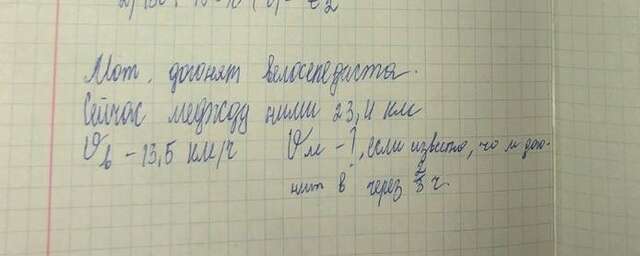 Мот. догонят велосепедиста.
Сейчас меджду ними 23,4 км
V в - 13,5 км/ч V м - ?, если известно, чо м дого-
нит в через 2/3 ч.